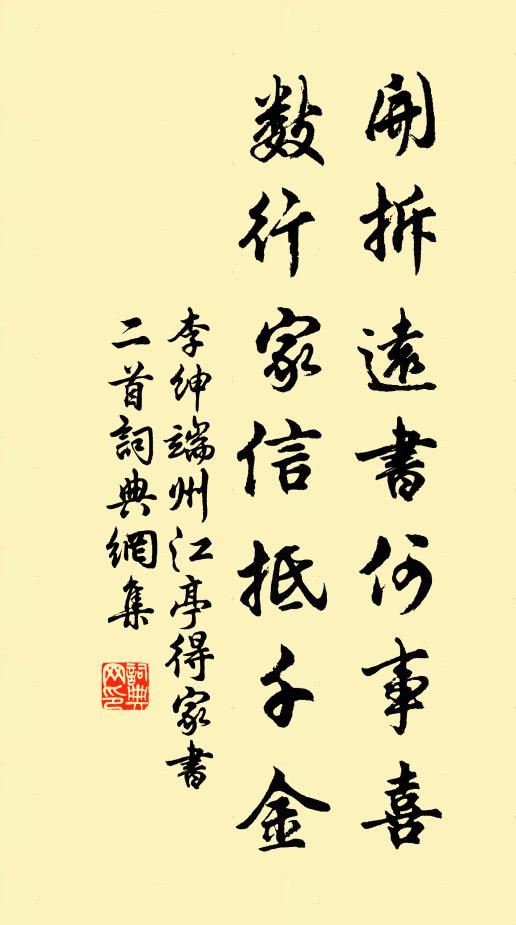 開拆遠書何事喜
數行家信抵千金
李紳端州江亭得家書
二首詞典網集
詞典網印